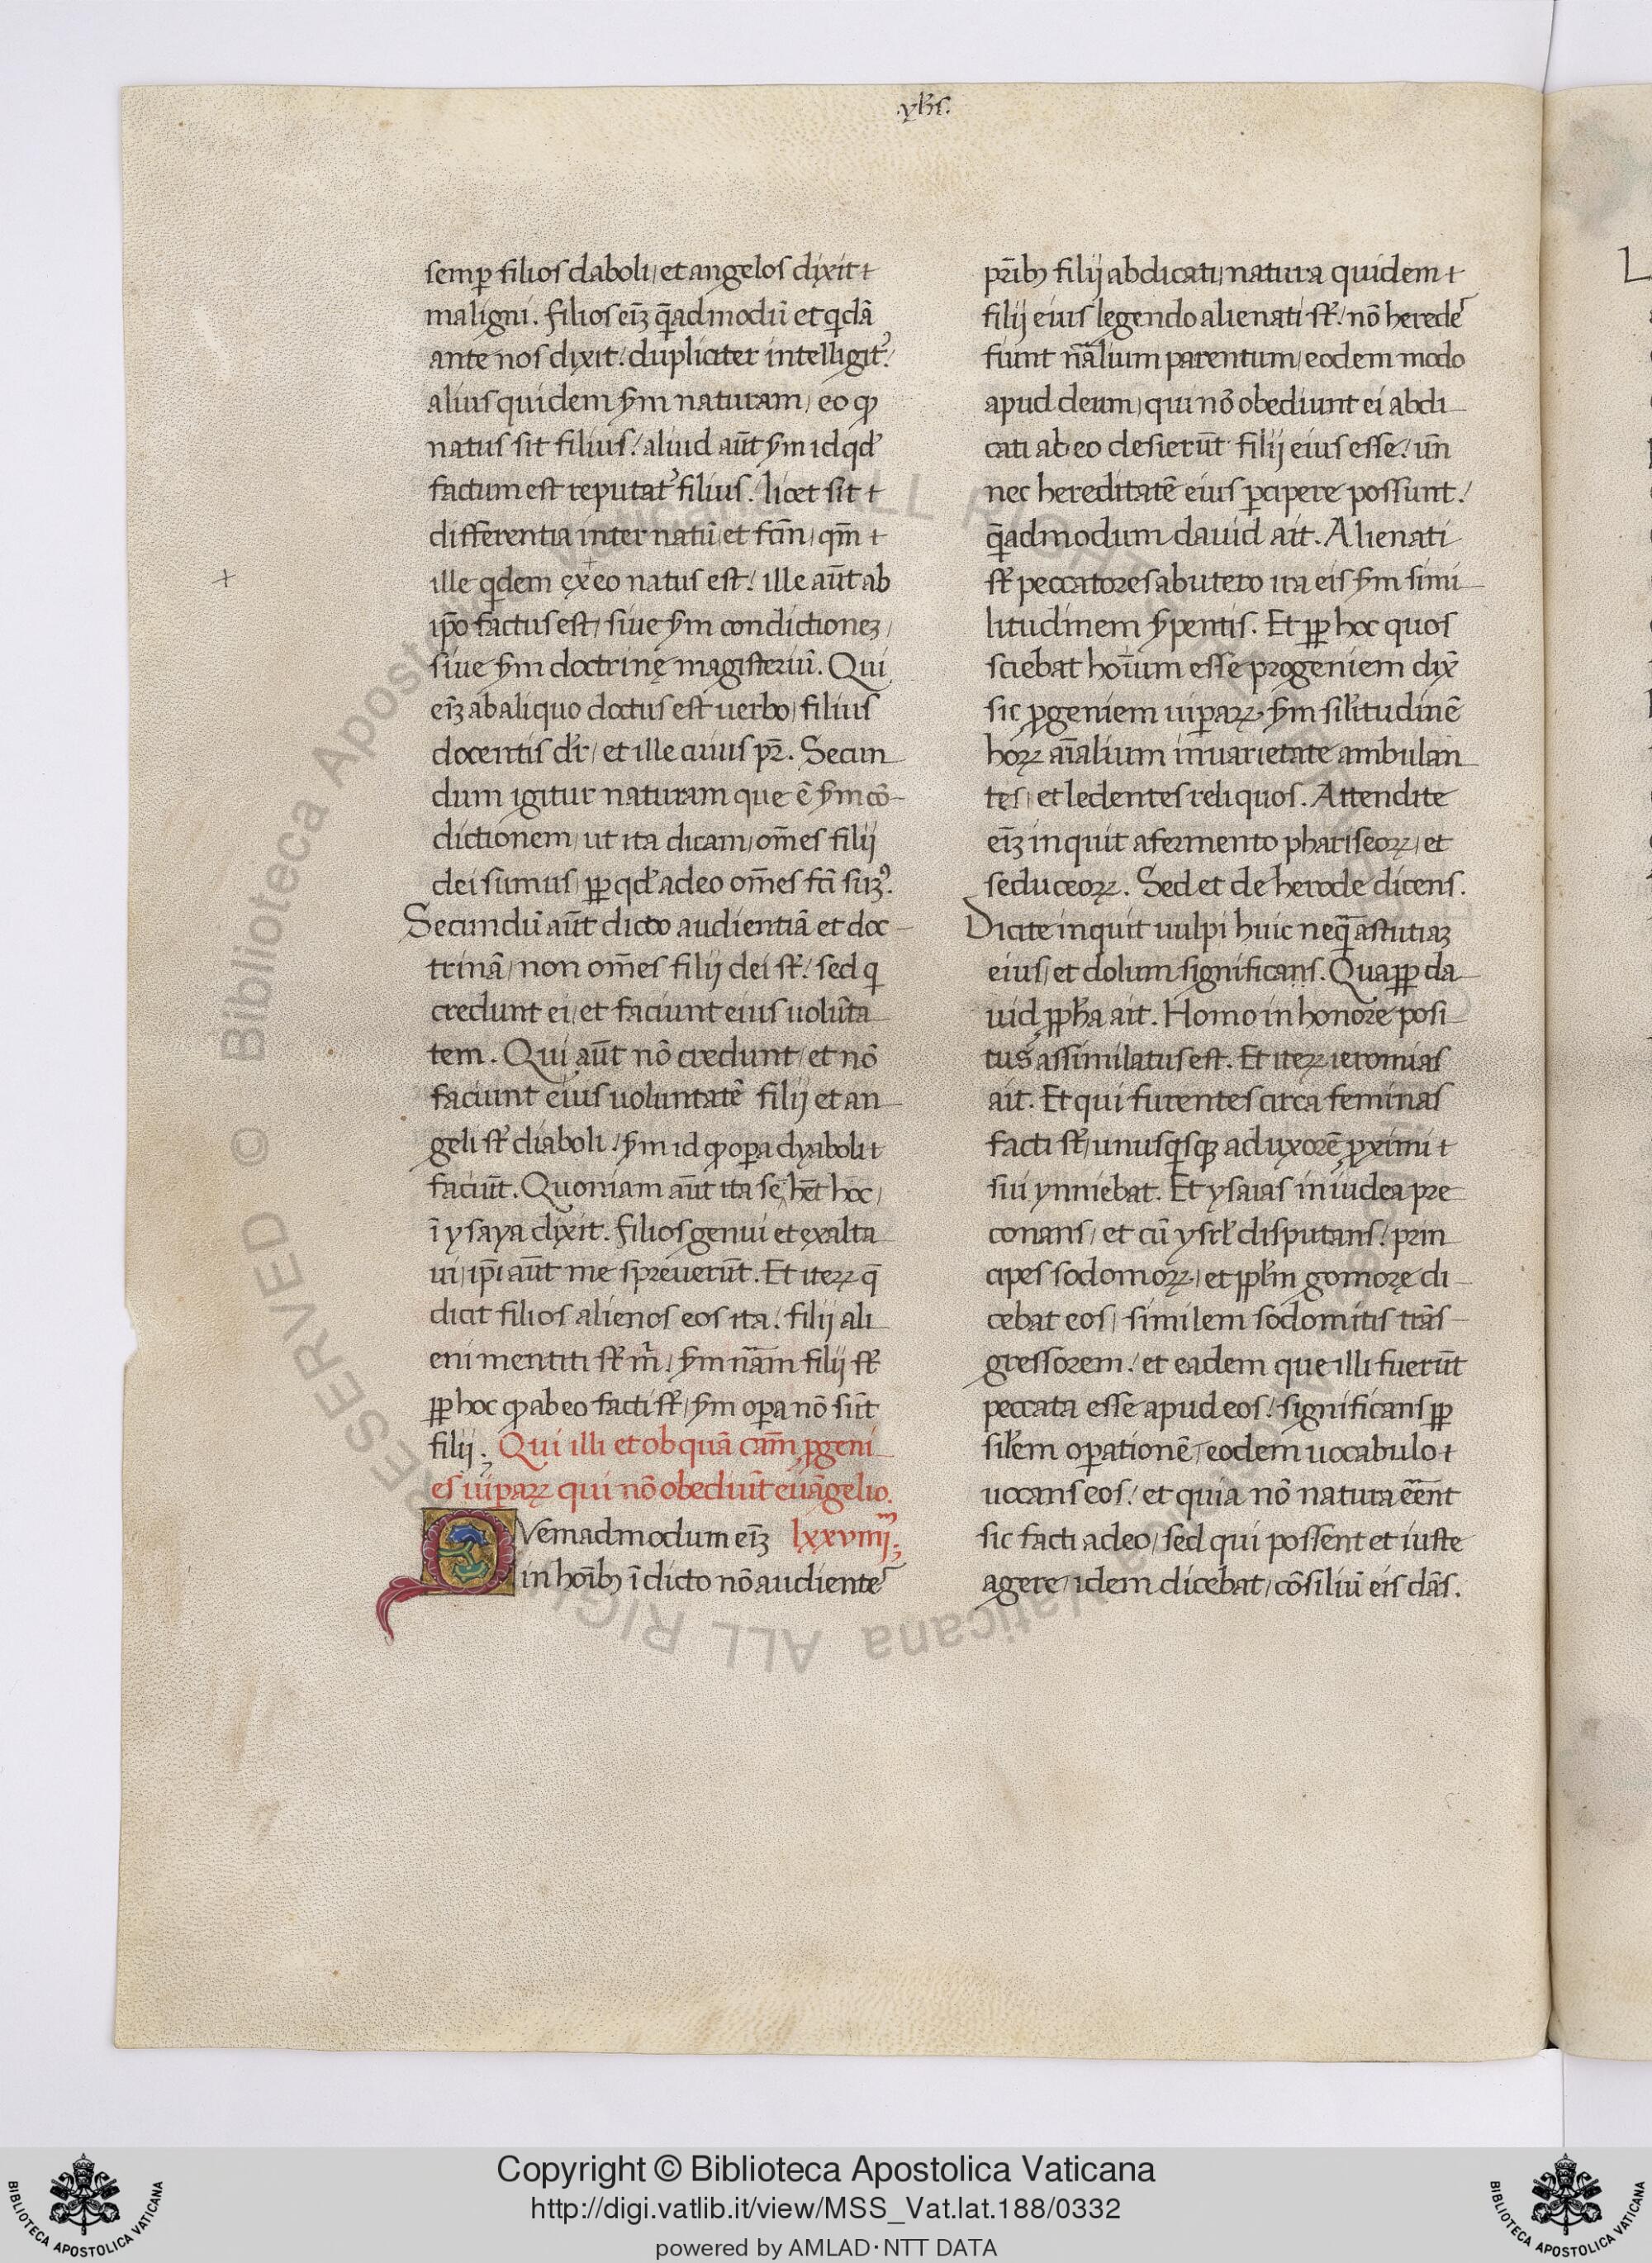 .yhs.
semꝑ filios daboli, et angelos dixit
maligni. filios eiꝫ q̄admodū et qdā
ante nos dixit. dupliciter intelligit᷒.
alius quidem ẜm naturam, eo ꝙ
natus sit filius. aliud aūt ẜm id qd᾽
factum est reputat᷒ filius. licet sit
differentia inter natū et fc̄m, qm̄
ille qdem ex eo natus est. ille aūt ab
ip̄o factus est, siue ẜm condictioneꝫ,
siue ẜm doctrinę magisteriū. Qui
eīꝫ ab aliquo doctus est uerbo, filius
docentis dr̄, et ille cuius pr̄. Secun
dum igitur naturam que ē ẜm cō
dictionem, ut ita dicam, om̄es filii
dei sumus, ꝓp qd᾽ a deo om̄es fc̄i sumꝰ.
Secundū aūt dicto audientiā et doc
trinā, non om̄es filij dei st̄. sed q
credunt ei, et faciunt eius uolūta
tem. Qui aūt nō credunt, et nō
faciunt eius uoluntatē filij et an
geli st̄ diaboli. ẜm id ꝙ oꝑa dyaboli
faciūt. Quoniam aūt ita se, hēt hoc,
ī ysaya dixit. filios genui et exalta
ui, ip̄i aūt me spreuerūt. Et iteꝝ q̄
dicit filios alienos eos ita. filij ali
eni mentiti st̄ m̄, ẜm nām filij st̄
ꝓp hoc ꝙ ab eo facti st̄, ẜm oꝑa nō sūt
filij. Qui illi et ob quā cām ꝓgeni
es uiꝑaꝝ qui nō obediūt euāgelio.
Vemadmodum eīꝫ lxxviiij.
in hoībꝫ ī dicto nō audientes
pr̄ibꝫ filij abdicati, natura quidem
filij eius legendo alienati st̄. nō heredes
fiunt nālium parentum, eodem modo
apud deum, qui nō obediunt ei abdi
cati ab eo desierūt filij eius esse. uñ
nec hereditatē eius ꝑcipere possunt.
q̄admodum dauid ait. Alienati
st̄ peccatores ab utero ira eis ẜm simi
litudinem ẜpentis. Et ꝓp hoc quos
sciebat hoīum esse progeniem dix̄
sic ꝓgeniem uiꝑaꝝ, ẜm silitudinē
hoꝝ aīalium in uarietate ambulan
tes, et ledentes reliquos. Attendite
eīꝫ inquit a fermento phariseoꝝ, et
seduceoꝝ. Sed et de herode dicens.
Dicite inquit uulpi huic neq̄ astutiaꝫ
eius, et dolum significans. Quaꝓp da
uid ꝓpha ait. Homo in honore posi
tus assimilatus est. Et iteꝝ ieromias
ait. Et qui furentes circa feminas
facti st̄, unusqsqꝫ ad uxorē ꝓximi
sui ynniebat. Et ysaias in iudea pre
conans, et cū ysrl̄ disputans. prin
cipes sodomoꝝ, et ppl̄m gomorę di
cebat eos, similem sodomitis trās
gressorem. et eadem que illi fuerūt
peccata esse apud eos. significans ꝓp
sil̄em oꝑationē, eodem uocabulo
uocans eos. et quia nō natura eēnt
sic facti a deo, sed qui possent et iuste
agere, idem dicebat, cōsiliū eis dās.
Copyright © Biblioteca Apostolica Vaticana
http://digi.vatlib.it/view/MSS_Vat.lat.188/0332
powered by AMLAD·NTT DATA
BIBLIOTECA APOSTOLICA VATICANA
BIBLIOTECA APOSTOLICA VATICANA
© Biblioteca Apostolica Vaticana ALL RIGHTS RESERVED